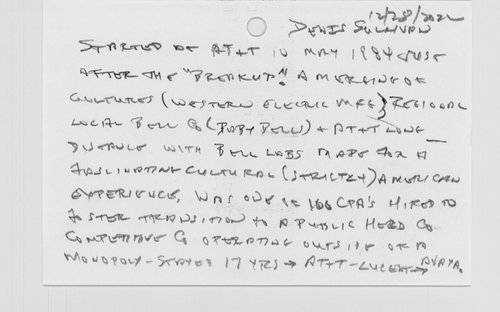 12/28/2022
Denis Sullivan
Started at AT&T in May 1984 just
after the "Breakup"! A merging of
cultures (Western Electric MFG) Regional
Local Bell Co (Baby Bells) + AT&T Long
with Bell Labs made for a
fascinating cultural (strictly) American
experience, was one of 100 CPA's hired to
foster transition to a public held co
competitive co operating outside of a
monopoly - stayed 17 yrs → AT&T - Lucent → Avaya.